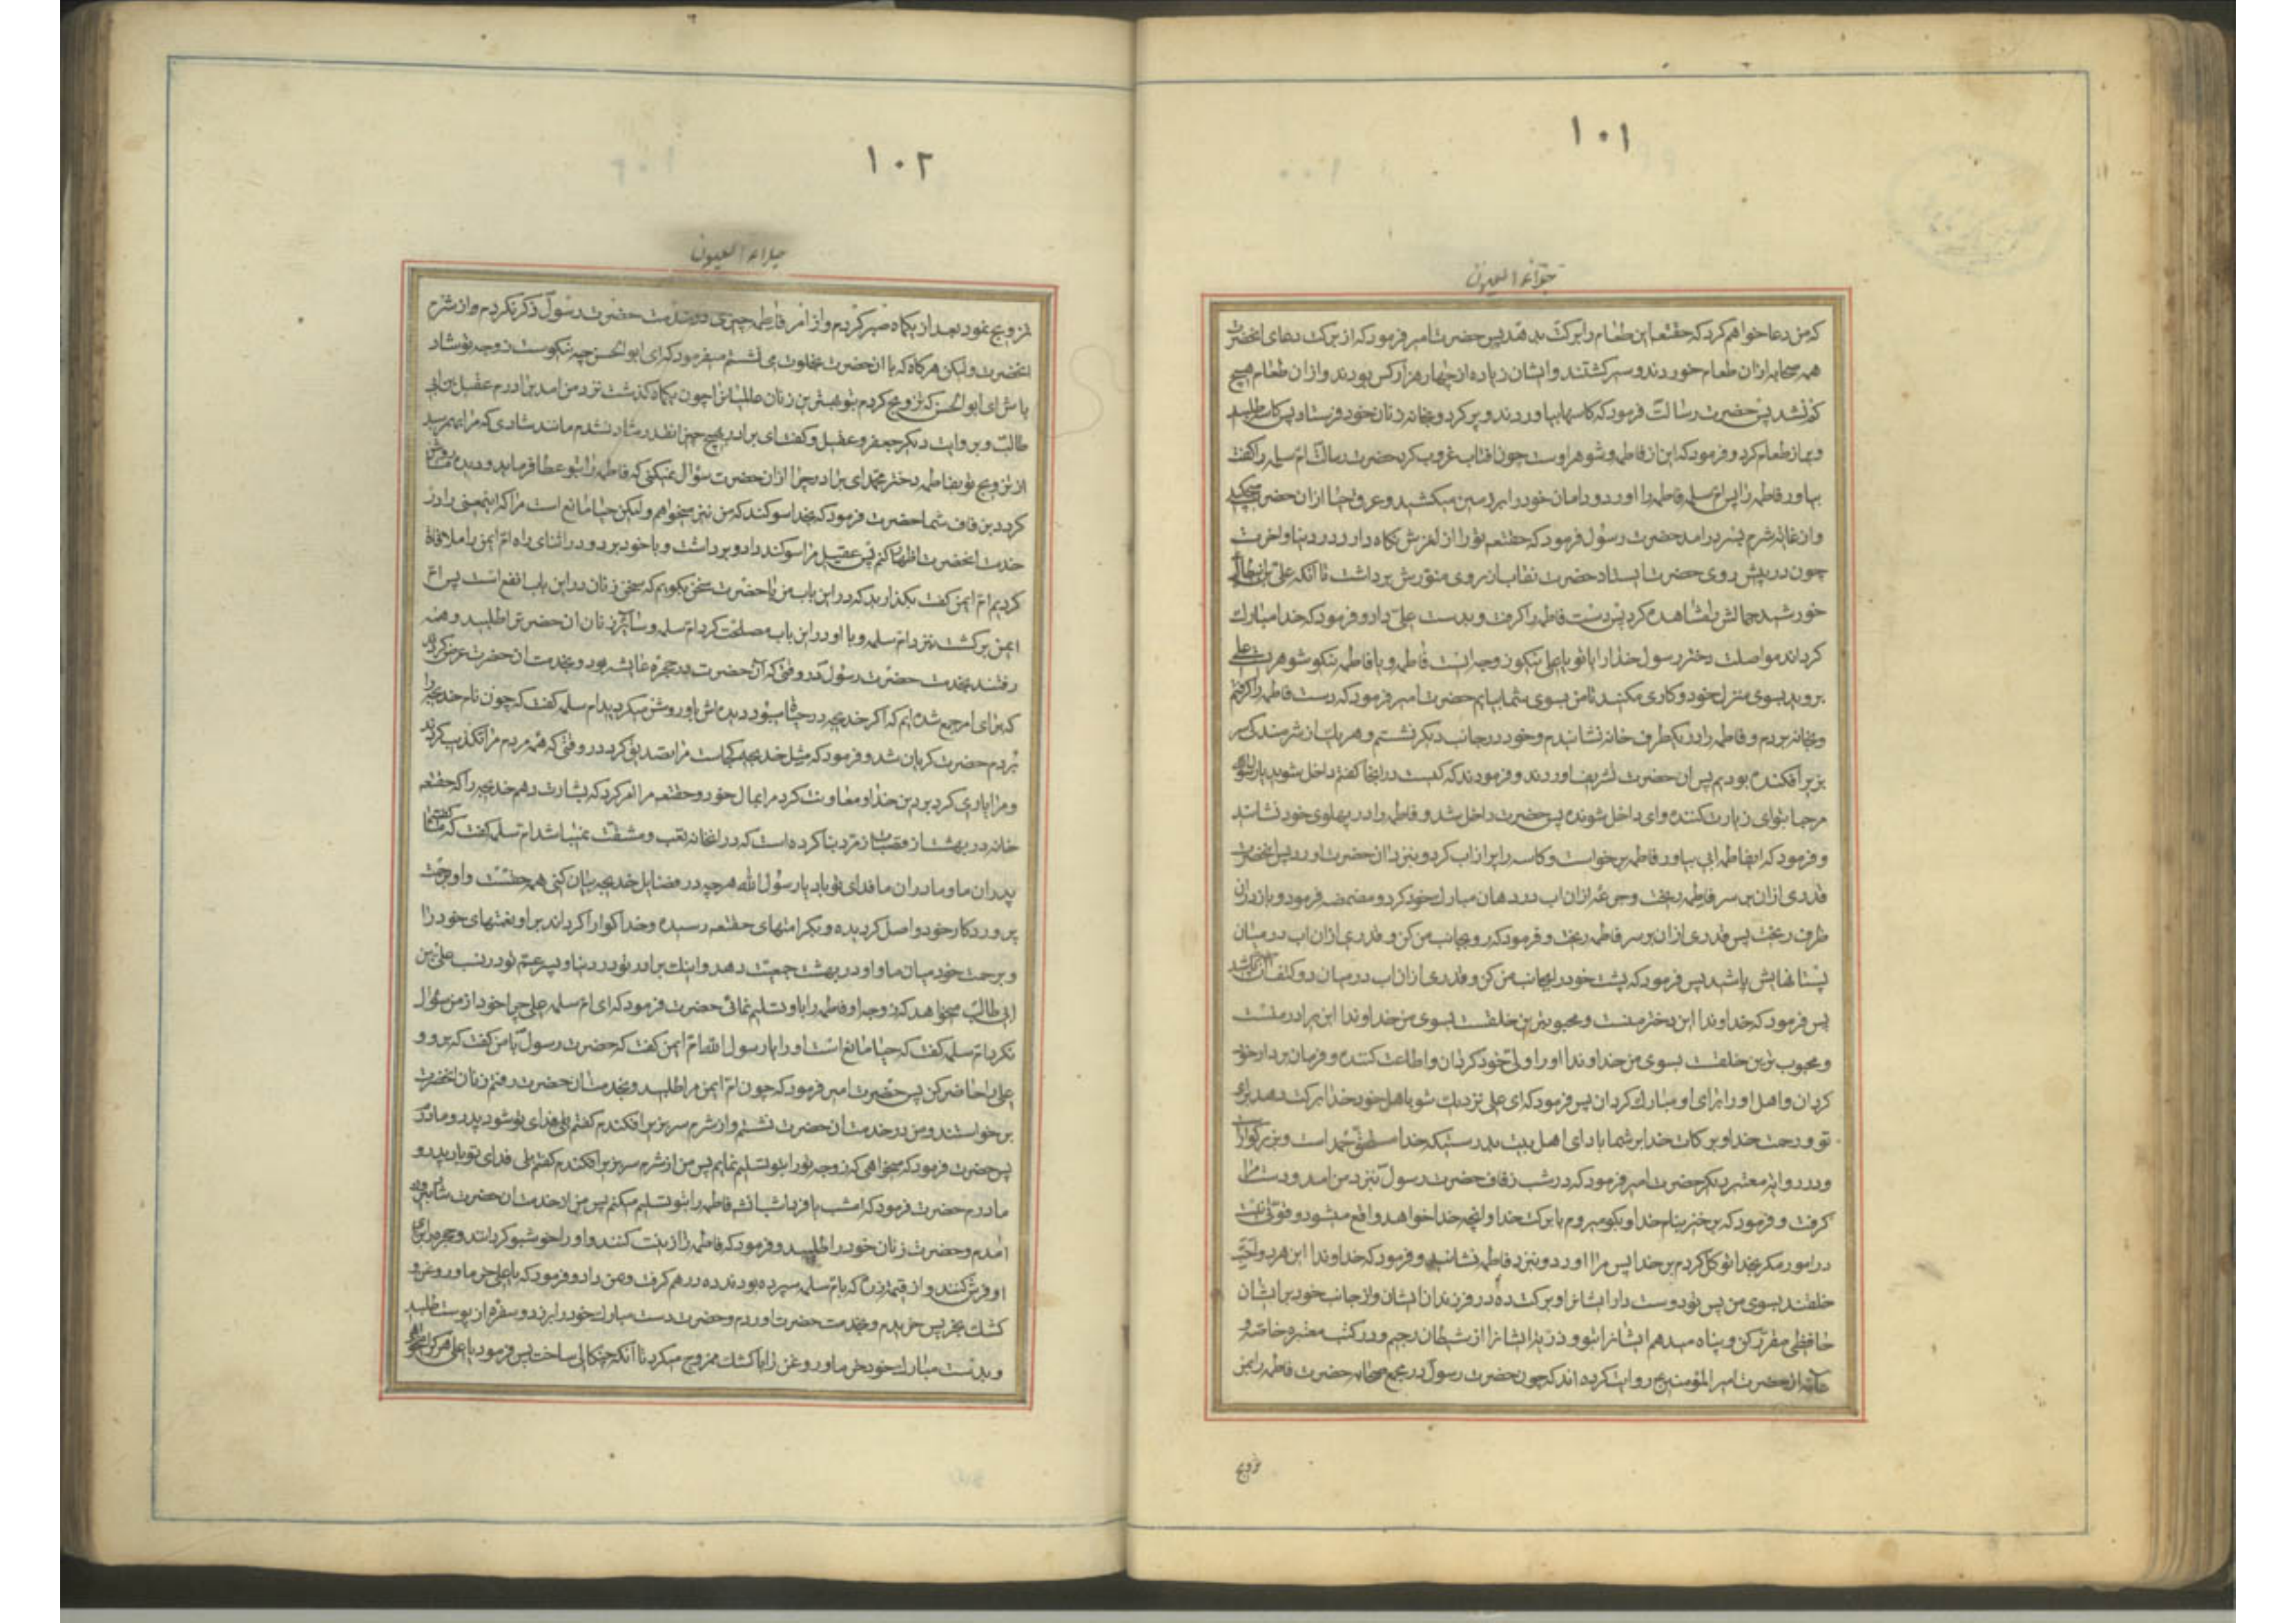 ۱۰۱
جلاء العیون
که من دعا خواهم کرد که حقتعه این طعام را برکت بدهد پس حضرت امیر فرمود که از برکت دعای انحضرت
همه صحابه ازان طعام خوردند و سیر کشتند و ایشان زیاده از چهار هزار کس بودند و از ان طعام هیچ
کم نشد پس حضرت رسالت فرمود که کاسها بیاوردند و پر کرد و بخانه زنان خود فرستاد پس کاسه طلبید
و پر از طعام کرد و فرمود که این از فاطمه و شوهر اوست چون افتاب غروب کرد حضرت رسالت ام سلمه را کفت
بیاور فاطمه را پس ام سلمه فاطمه را اورد و دامان خود را بر زمین میکشید و عرق حیا از ان حضرت میچکید
و از غایت شرم بسر درامد حضرت رسول فرمود که حقتعه تو را از لغزش نکاه دارد در دنیا و اخرت
چون در پیش روی حضرت ایستاد حضرت نقاب از روی منورش برداشت تا انکه علی بن ابی طالب
خورشید جمالش را مشاهده کرد پس دست فاطمه را کرفت و بدست علی داد و فرمود که خدا مبارک
کرداند مواصلت دختر رسول خدا را با تو یا علی نیکو زوجه است فاطمه و یا فاطمه نیکو شوهریست علی
بروید بسوی منزل خود و کاری مکنید تا من بسوی شما بیایم حضرت امیر فرمود که دست فاطمه را کرفتم
و بخانه بردم و فاطمه را در یکطرف خانه نشاندم و خود در جانب دیکر نشستم و هر یک از شرمندکی سر
بزیر افکنده بودیم پس ان حضرت تشریف اوردند و فرمودند که کیست در اینجا کفتم داخل شوید یا رسول الله
مرحبا بتو ای زیارت کننده و ای داخل شونده پس حضرت داخل شد و فاطمه را در پهلوی خود نشانید
و فرمود که ای فاطمه ابی بیاور فاطمه برخواست و کاسه را پر از اب کرد و بنزد ان حضرت اورد پس انحضرت
قدری ازان بر سر فاطمه ریخت و جرعهٔ ازان اب در دهان مبارک خود کرد و مضمضه فرمود و باز در ان
ظرف ریخت پس قدری ازان بر سر فاطمه ریخت و فرمود که رو بجانب من کن و قدری ازان اب در میان
پستانهایش پاشید پس فرمود که پشت خود را بجانب من کن و قدری ازان اب در میان دو کتفش پاشید
پس فرمود که خداوندا این دختر منست و محبوبترین خلقست بسوی من خداوندا این برادر منست
و محبوب ترین خلقست بسوی من خداوندا او را ولی خود کردان و اطاعت کننده و فرمان بردار خود
کردان و اهل او را برای او مبارک کردان پس فرمود که ای علی نزدیک شو با هل خود خدا برکت دهد برای
تو و رحمت خدا و برکات خدا بر شما باد ای اهل بیت بدرستیکه خدا مستحق حمد است و بزرکوار
و در روایت معتبر دیکر حضرت امیر فرمود که در شب زفاف حضرت رسول بنزد من امد و دست مرا
کرفت و فرمود که برخیز بنام خدا و بکو میروم با برکت خدا و انچه خدا خواهد واقع میشود و قوتی نیست
در امور مکر بخدا توکل کردم بر خدا پس مرا اورد و بنزد فاطمه نشانید و فرمود که خداوندا این هر دو احب
خلقند بسوی من پس تو دوست دار ایشانرا و برکت ده در فرزندان ایشان و از جانب خود بر ایشان
حافظی مقرر کن و پناه میدهم ایشانرا بتو و ذریه ایشانرا از شیطان رجیم و در کتب معتبره خاصه و
عامه از حضرت امیر المؤمنین ع روایت کرده اند که چون حضرت رسول در مجمع صحابه حضرت فاطمه را بمن
تزویج
۱۰۲
جلاء العیون
تزویج نمود بعد از یکماه صبر کردم و از امر فاطمه چیزی در خدمت حضرت رسول ذکر نکردم و از شرم
انحضرت و لیکن هرکاه که با ان حضرت بخلوت می نشستم میفرمود که ای ابو الحسن چه نیکوست زوجه تو شاد
باش ای ابو الحسن که تزویج کردم بتو بهترین زنان عالمیانرا چون یکماه کذشت نزد من امد برادرم عقیل بن ابی
طالب و بروایت دیکر جعفر و عقیل و کفت ای برادر بهیچ چیز انقدر شاد نشدم مانند شادی که مرا بهمرسید
از تزویج تو بفاطمه دختر محمد ای برادر چرا از ان حضرت سؤال نمیکنی که فاطمه را بتو عطا فرماید و دیده ما روشن
کردد بزفاف شما حضرت فرمود که بخدا سوکند که من نیز میخواهم و لیکن حیا مانع است مرا که اینمعنی را در
خدمت انحضرت اظهار کنم پس عقیل مرا سوکند داد و برداشت و با خود برد و در اثنای راه ام ایمن را ملاقاة
کردیم ام ایمن کفت بکذارید که در این باب من با حضرت سخن بکویم که سخن زنان در این باب انفع است پس ام
ایمن برکشت بنزد ام سلمه و با او در این باب مصلحت کرد ام سلمه و سایر زنان ان حضرت را طلبید و همه
رفتند بخدمت حضرت رسول در وقتی که ان حضرت در حجره عایشه بود و بخدمت ان حضرت عرض کردند
که برای امر جمع شده ایم که اکر خدیجه در حیات میبود دیده اش باو روشن میکردید ام سلمه کفت که چون نام خدیجه را
بردم حضرت کریان شد و فرمود که مثل خدیجه کجاست مرا تصدیق کرد در وقتی که همه مردم مرا تکذیب کردند
و مرا یاری کرد بر دین خدا و معاونت کرد مرا بمال خود و حقتعه مرا امر کرد که بشارت دهم خدیجه را که حقتعه
خانه در بهشت از قصبات زمرد بنا کرده است که در انخانه تعب و مشقت نمیباشد ام سلمه کفت که ما کفتیم
پدران ما و مادران ما فدای تو باد یا رسول الله هر چه در فضایل خدیجه بیان کنی همه حقست و او برحمت
پروردکار خود واصل کردیده و بکرامتهای حقتعه رسیده و خدا کوارا کرداند بر او نعمتهای خود را
و برحمت خود میان ما و او در بهشت جمعیت دهد و اینک برادر تو در دنیا و پسر عم تو در نسب علی بن
ابی طالب میخواهد که زوجه او فاطمه را باو تسلیم نمائی حضرت فرمود که ای ام سلمه علی چرا خود از من سؤال
نکرد ام سلمه کفت که حیا مانع است او را یا رسول الله ام ایمن کفت که حضرت رسول با من کفت که برو و
علی را حاضر کن پس حضرت امیر فرمود که چون ام ایمن مرا طلبید و بخدمت ان حضرت رفتم زنان انحضرت
برخواستند و من در خدمت ان حضرت نشستم و از شرم سر بزیر افکندم
پس حضرت فرمود که میخواهی که زوجه تو را بتو تسلیم نمایم پس من از شرم سر بزیر افکندم کفتم بلی فدای تو باد پدر و
مادرم حضرت فرمود که امشب یا فردا شب انشاء الله فاطمه را بتو تسلیم میکنم پس من از خدمت ان حضرت شاد بیرون
امدم و حضرت زنان خود را طلبید و فرمود که فاطمه را زینت کنند و او را خوشبو کردانند و حجره برای
او فرش کنند و از قیمت زره که بام سلمه سپرده بودند ده درهم کرفت و بمن داد و فرمود که یا علی خرما و روغن و
کشک بخر پس خریدم و بخدمت حضرت اوردم و حضرت دست مبارک خود را برزد و سفره از پوست طلبید
و بدست مبارک خود خرما و روغن را با کشک ممزوج میکرد تا انکه چنکالی ساخت پس فرمود یا علی هر که را میخواهی